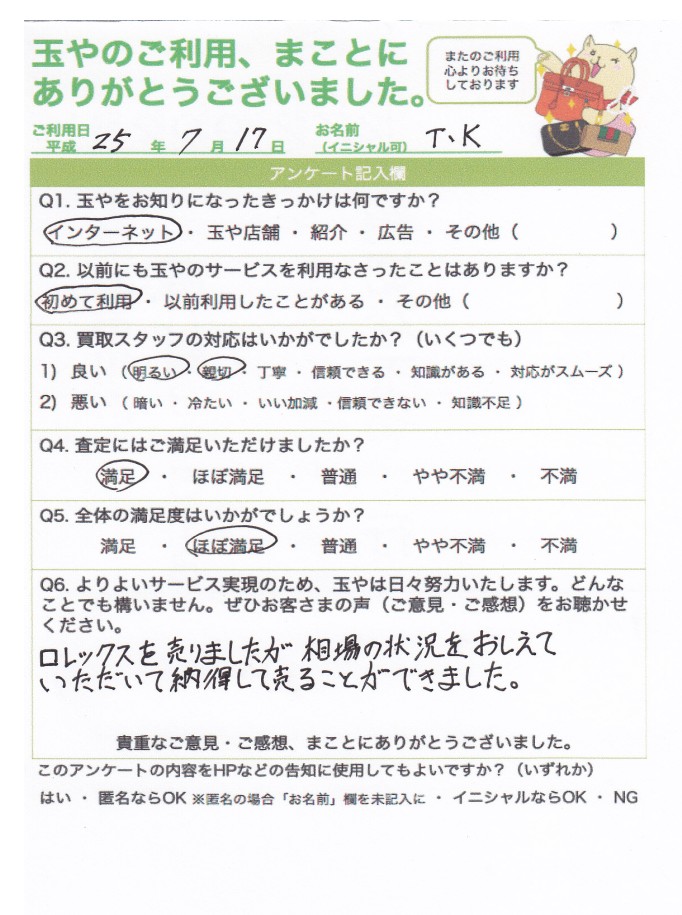 玉やのご利用、まことに
ありがとうございました。
またのご利用
心よりお待ち
しております
ご利用日
平成 25 年 7 月 17 日
お名前
(イニシャル可) T、K
アンケート記入欄
Q1. 玉やをお知りになったきっかけは何ですか？
インターネット ・ 玉や店舗 ・ 紹介 ・ 広告 ・ その他（　　　　　）
Q2. 以前にも玉やのサービスを利用なさったことはありますか？
初めて利用 ・ 以前利用したことがある ・ その他（　　　　　　　　）
Q3. 買取スタッフの対応はいかがでしたか？（いくつでも）
1) 良い （明るい ・ 親切 ・ 丁寧 ・ 信頼できる ・ 知識がある ・ 対応がスムーズ）
2) 悪い （ 暗い ・ 冷たい ・ いい加減 ・信頼できない ・ 知識不足 ）
Q4. 査定にはご満足いただけましたか？
満足 ・ ほぼ満足 ・ 普通 ・ やや不満 ・ 不満
Q5. 全体の満足度はいかがでしょうか？
満足 ・ ほぼ満足 ・ 普通 ・ やや不満 ・ 不満
Q6. よりよいサービス実現のため、玉やは日々努力いたします。どんな
ことでも構いません。ぜひお客さまの声（ご意見・ご感想）をお聴かせ
ください。
ロレックスを売りましたが 相場の状況をおしえて
いただいて納得して売ることができました。
貴重なご意見・ご感想、まことにありがとうございました。
このアンケートの内容をHPなどの告知に使用してもよいですか？（いずれか）
はい ・ 匿名ならOK ※匿名の場合「お名前」欄を未記入に ・ イニシャルならOK ・ NG